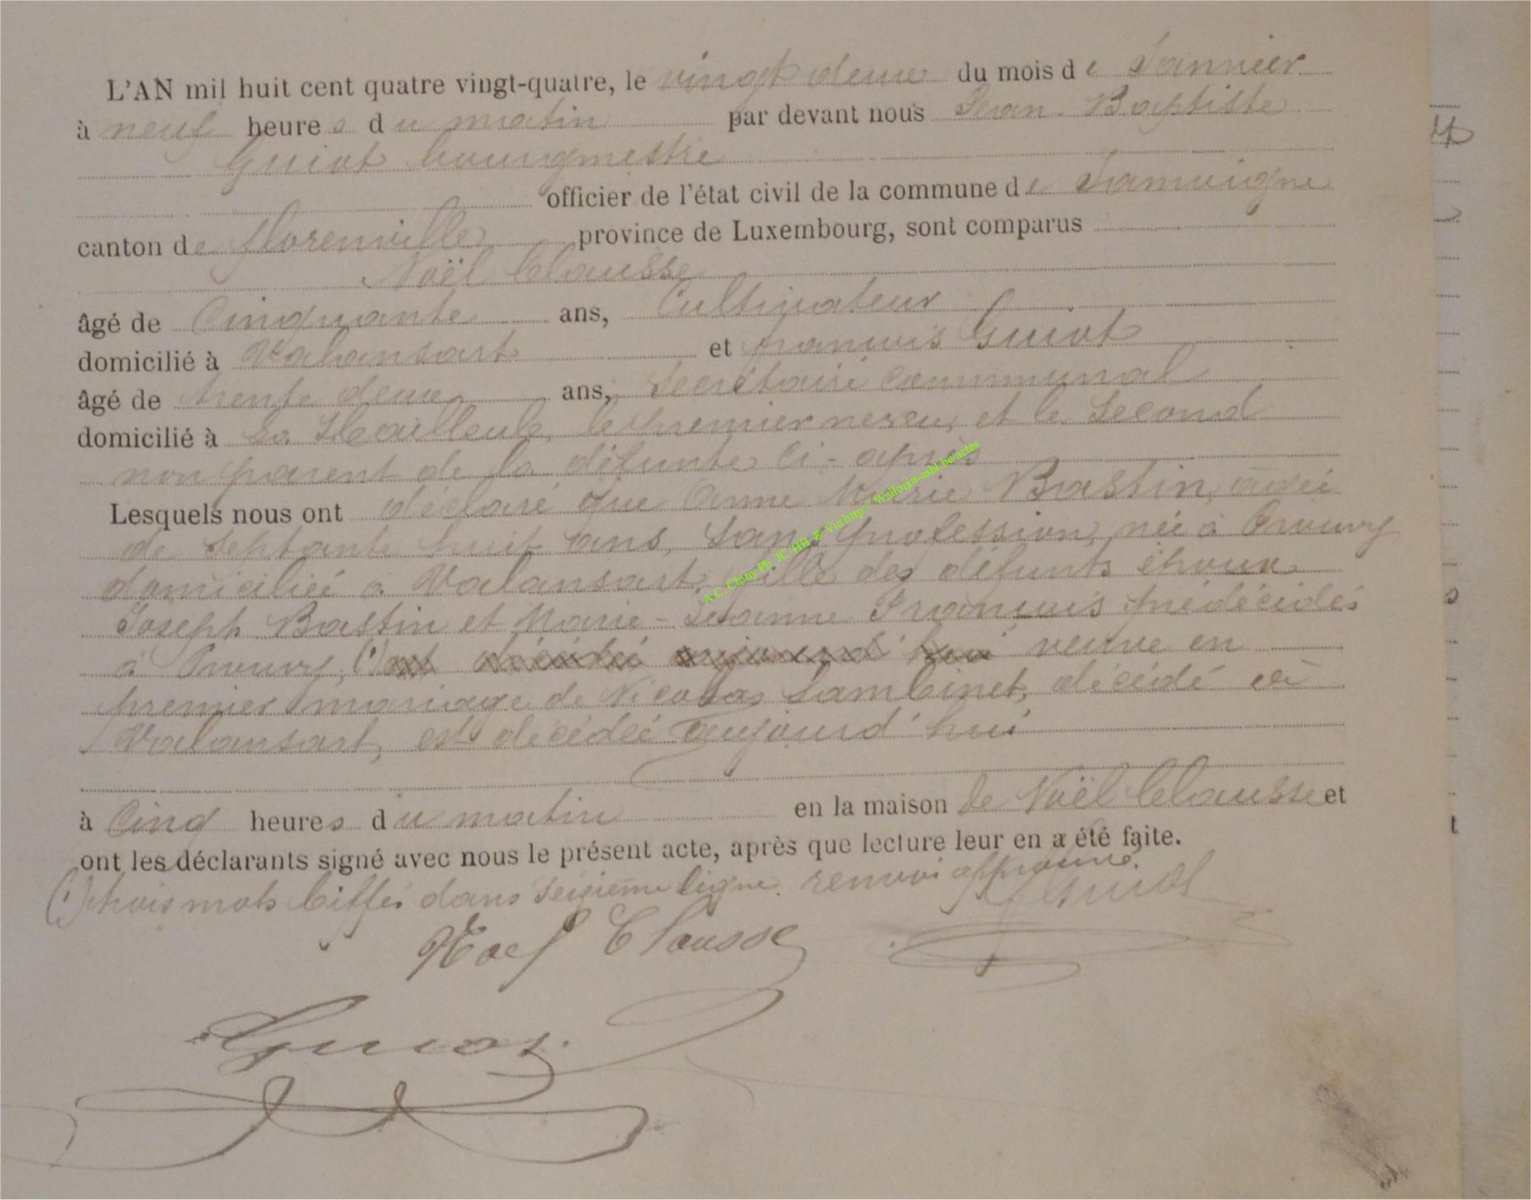 L'AN mil huit cent quatre vingt-quatre, le vingt deux du mois de Janvier
à neuf heures du matin par devant nous Jean Baptiste
Guiot bourgmestre
officier de l'état civil de la commune de Jamoigne
canton de Florenville province de Luxembourg, sont comparus
Noël Clausse
âgé de Cinquante ans, Cultivateur
domicilié à Valansart et françois Guiot
âgé de trente deux ans, Secrétaire communal
domicilié à La Hailleule, le premier neveu, et le Second
non parent de la défunte ci-après
Lesquels nous ont déclaré que Anne Marie Bastin, agée
de Septante huit ans, Sans profession, née à Prouvy
domiciliée à Valansart, fille des défunts époux
Joseph Bastin et Marie-Jeanne François prédécédés
à Prouvy, (1) est décédée aujourd'hui veuve en
premier mariage de Nicolas Lambinet, décédé à
Valansart, est décédée aujourd'hui
à Cinq heures du matin en la maison de Noël Clausse et
ont les déclarants signé avec nous le présent acte, après que lecture leur en a été faite.
(1) trois mots biffés dans Seizième ligne. renvoi approuvé.
Guiot
Noel Clausse
Guiot.